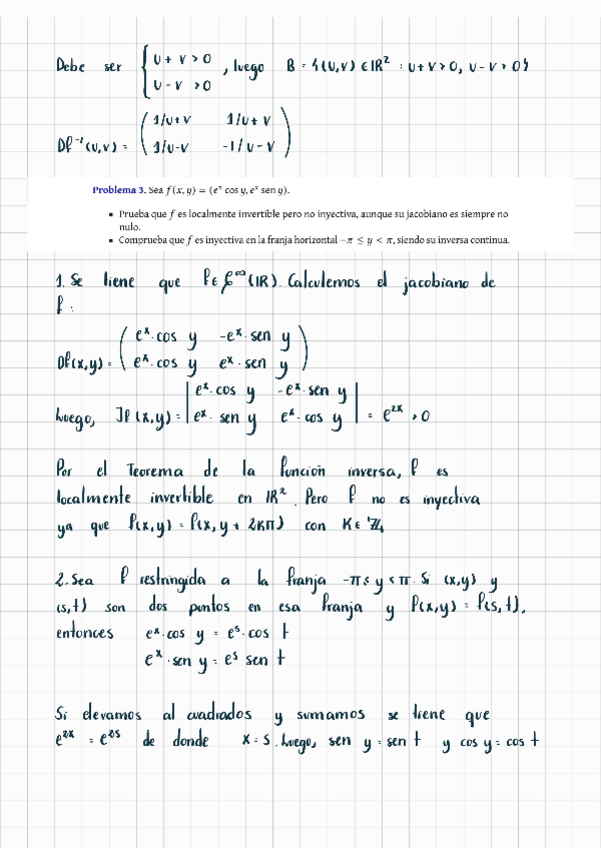 Debe ser { U + V > 0 , luego B = {(U,V) ∈ IR² : U+V>0, U-V>0}
U - V > 0
Df⁻¹(U,V) = ( 1/U+V 1/U+V
1/U-V -1/U-V )
Problema 3. Sea f(x, y) = (eˣ cos y, eˣ sen y).
• Prueba que f es localmente invertible pero no inyectiva, aunque su jacobiano es siempre no
nulo.
• Comprueba que f es inyectiva en la franja horizontal −π ≤ y < π, siendo su inversa continua.
1. Se tiene que f ∈ C^∞(IR). Calculemos el jacobiano de
f:
Df(x,y) = ( eˣ·cos y -eˣ·sen y
eˣ·cos y eˣ·sen y )
Luego, Jf(x,y) = | eˣ·cos y -eˣ·sen y
eˣ·sen y eˣ·cos y | = e²ˣ > 0
Por el Teorema de la función inversa, f es
localmente invertible en IR². Pero f no es inyectiva
ya que f(x,y) = f(x, y + 2Kπ) con K ∈ ℤ
2. Sea f restringida a la franja -π ≤ y < π. Si (x,y) y
(s,t) son dos puntos en esa franja y f(x,y) = f(s,t),
entonces eˣ·cos y = eˢ·cos t
eˣ·sen y = eˢ sen t
Si elevamos al cuadrados y sumamos se tiene que
e²ˣ = e²ˢ de donde x = s. Luego, sen y = sen t y cos y = cos t